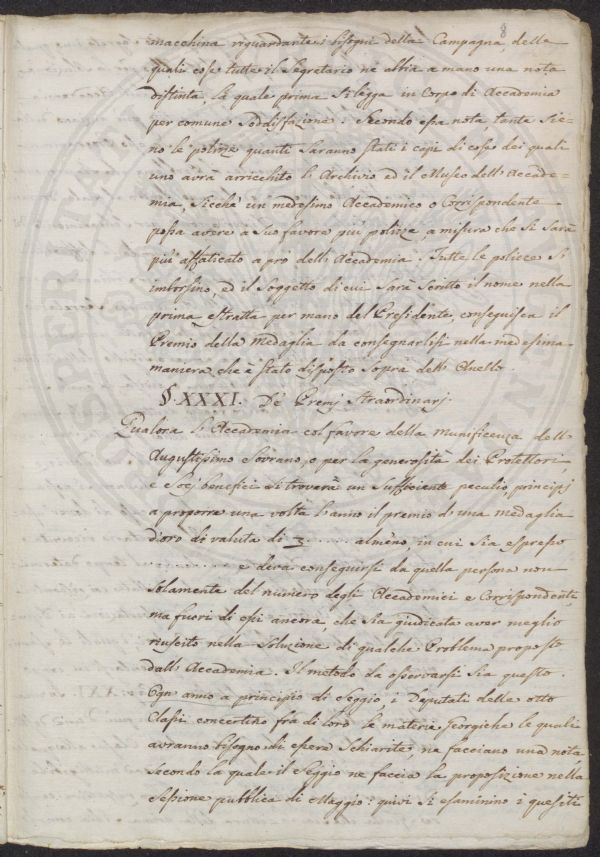 8
macchina riguardante i bisogni della Campagna delle
quali cose tutte il Segretario ne abbia a mano una nota
distinta, la quale prima si legga in Corpo di Accademia
per comune Soddisfazione: Secondo essa nota, tante Sie=
no le polizze quanti Saranno Stati i capi di cose dei quali
uno avrà arricchito l'Archivio ed il Museo dell'Accade=
mia, Sicchè un medesimo Accademico o Corrispondente
possa avere a Suo favore più polizze, a misura che Si Sarà
più affaticato a prò dell'Accademia. Tutte le polizze Si
imborsino, ed il Soggetto di cui Sarà Scritto il nome nella
prima estratta per mano del Presidente, conseguisca il
Premio della Medaglia da consegnarlisi nella medesima
maniera che è Stato disposto Sopra dell'Anello.
§. XXXI. De' Premj Straordinarj.
Qualora l'Accademia col favore della Munificenza dell'
Augustissimo Sovrano, o per la generosità dei Protettori,
e Socj benefici si troverà un Sufficiente peculio, principj
a proporre una volta l'anno il premio d'una medaglia
d'oro di valuta di ...... almeno, in cui Sia espresso
............ e dovrà conseguirsi da quella persona non
Solamente del numero degli Accademici e Corrispondenti,
ma fuori di essi ancora, che Sia giudicata aver meglio
riuscito nella Soluzione di qualche Problema proposto
dall'Accademia. Il metodo da osservarsi Sia questo.
Ogn'anno a principio di Seggio, i Deputati delle otto
Classi concertino frà di loro le materie Georgiche le quali
avranno bisogno di essere Schiarite, ne facciano una nota,
Secondo la quale il Seggio ne faccia la proposizione nella
Sessione pubblica di Maggio: quivi Si esaminino i quesiti